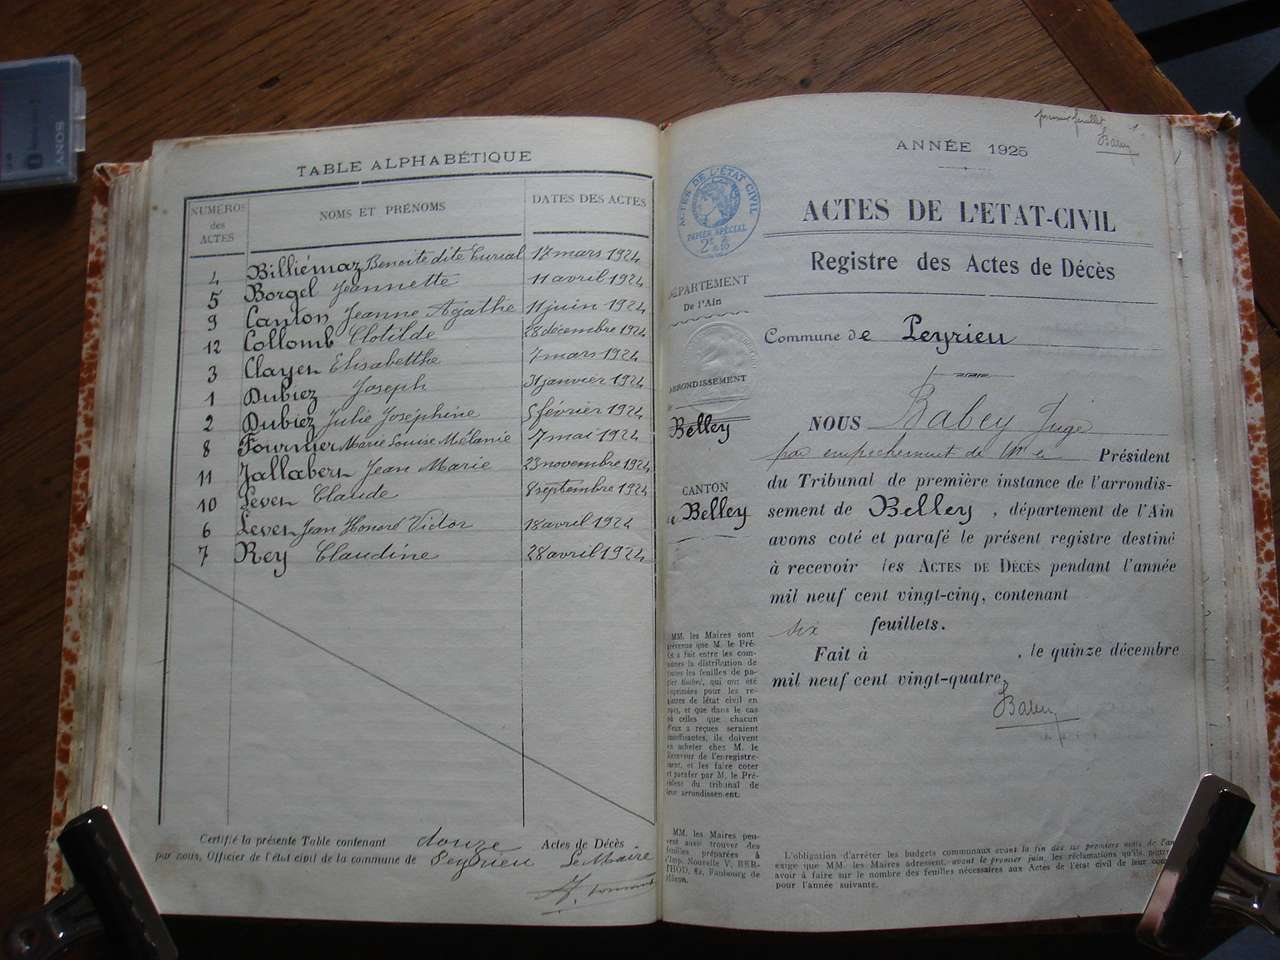 SONY
TABLE ALPHABÉTIQUE
NUMÉROS des ACTES NOMS ET PRÉNOMS DATES DES ACTES
4 Billiémaz Benoite dite Eurial 17 mars 1924
5 Borgel Jeannette 11 avril 1924
9 Canton Jeanne Agathe 11 juin 1924
12 Collomb Clotilde 28 décembre 1924
3 Clayen Elisabetthe 7 mars 1924
1 Dubiez Joseph 31 janvier 1924
2 Dubiez Julie Joséphine 5 février 1924
8 Fournier Marie Louise Mélanie 7 mai 1924
11 Jallabert Jean Marie 23 novembre 1924
10 Leven Claude 8 septembre 1924
6 Leven Jean Honoré Victor 18 avril 1924
7 Rey Claudine 28 avril 1924
Certifié la présente Table contenant douze Actes de Décès
par nous, Officier de l'état civil de la commune de Peyrieu Le Maire
premier feuillet 1
Babey
ANNÉE 1925
ACTES DE L'ÉTAT CIVIL
PAPIER SPÉCIAL
ACTES DE L'ETAT-CIVIL
Registre des Actes de Décès
DÉPARTEMENT
De l'Ain
Commune de Peyrieu
ARRONDISSEMENT
Belley
CANTON
Belley
NOUS Babey Juge
par empêchement de Mr le Président
du Tribunal de première instance de l'arrondis-
sement de Belley, département de l'Ain
avons coté et parafé le présent registre destiné
à recevoir les ACTES DE DÉCÈS pendant l'année
mil neuf cent vingt-cinq, contenant
six feuillets.
Fait à , le quinze décembre
mil neuf cent vingt-quatre.
Babey
MM. les Maires sont
prévenus que M. le Pré-
fet a fait entre les com-
munes la distribution de
toutes les feuilles de pa-
pier timbré, qui ont été
imprimées pour les re-
gistres de l'état civil en
1925, et que dans le cas
où celles que chacun
d'eux a reçues seraient
insuffisantes, ils doivent
en acheter chez M. le
Receveur de l'enregistre-
ment, et les faire coter
et parafer par M. le Pré-
sident du tribunal de
leur arrondissement.
MM. les Maires peu-
vent aussi trouver des
feuilles préparées à
l'Imp. Nouvelle V. BER-
THOD, 82, Faubourg de
Mâcon.
L'obligation d'arrêter les budgets communaux avant la fin des six premiers mois de l'an
exige que MM. les Maires adressent, avant le premier juin, les réclamations qu'ils
avoir à faire sur le nombre des feuilles nécessaires aux Actes de l'état civil de leur
pour l'année suivante.